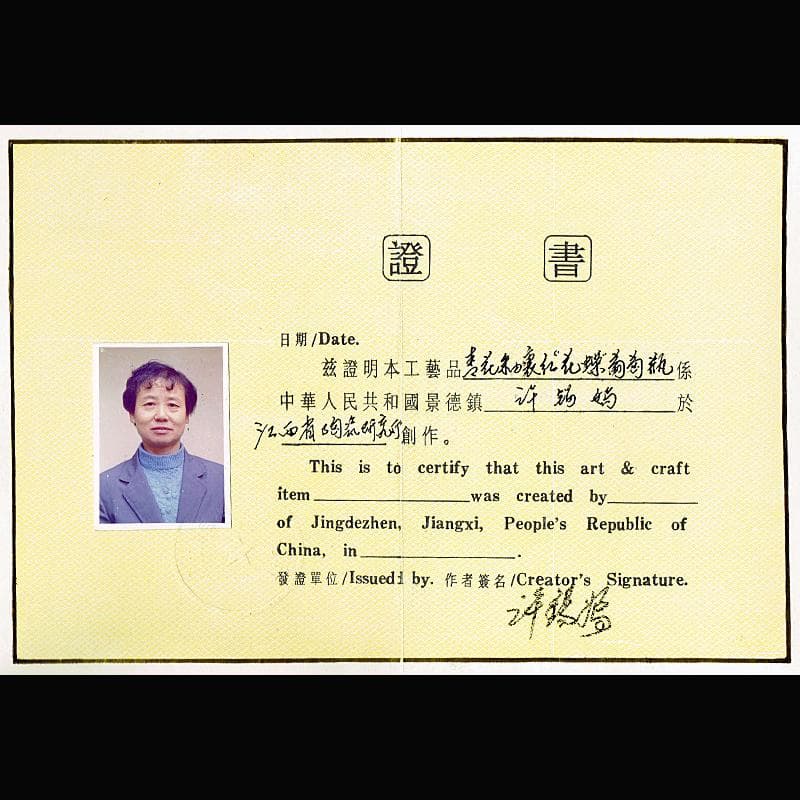 證 書
日期/Date.
兹證明本工藝品青花釉裏红花蝶葡萄瓶係
中華人民共和國景德鎮許錫嫣於
江西省陶瓷研究所創作。
This is to certify that this art & craft
item was created by
of Jingdezhen, Jiangxi, People's Republic of
China, in .
發證單位/Issued by. 作者簽名/Creator's Signature.